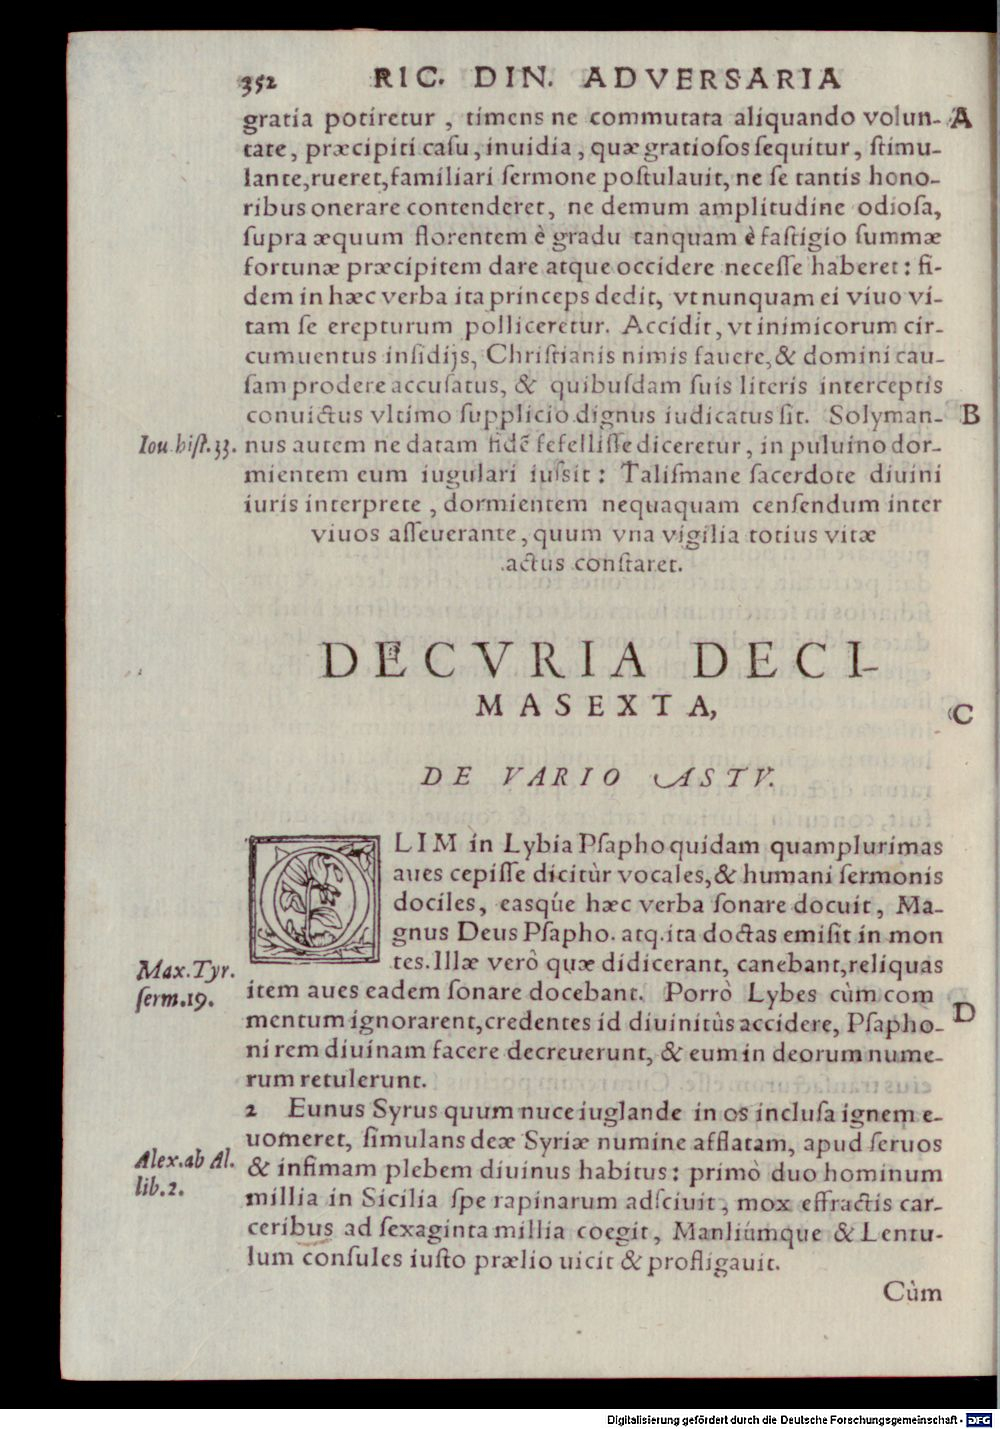 352 RIC. DIN. ADVERSARIA
gratia potiretur, timens ne commutata aliquando volun- A
tate, præcipiti casu, inuidia, quæ gratiosos sequitur, stimu-
lante, rueret, familiari sermone postulauit, ne se tantis hono-
ribus onerare contenderet, ne demum amplitudine odiosa,
supra æquum florentem è gradu tanquam è fastigio summæ
fortunæ præcipitem dare atque occidere necesse haberet: fi-
dem in hæc verba ita princeps dedit, vt nunquam ei viuo vi-
tam se erepturum polliceretur. Accidit, vt inimicorum cir-
cumuentus insidijs, Christianis nimis fauere, & domini cau-
sam prodere accusatus, & quibusdam suis literis interceptis
conuictus vltimo supplicio dignus iudicatus sit. Solyman- B
Iou. hist. 33. nus autem ne datam fidē fefellisse diceretur, in puluino dor-
mientem eum iugulari iussit: Talismane sacerdote diuini
iuris interprete, dormientem nequaquam censendum inter
viuos asseuerante, quum vna vigilia totius vitæ
actus constaret.
DECVRIA DECI-
MASEXTA,
C
DE VARIO ASTV.
OLIM in Lybia Psapho quidam quamplurimas
aues cepisse dicitùr vocales, & humani sermonis
dociles, easqúe hæc verba sonare docuit, Ma-
gnus Deus Psapho. atq. ita doctas emisit in mon
Max. Tyr. tes. Illæ verò quæ didicerant, canebant, reliquas
serm. 19. item aues eadem sonare docebant. Porrò Lybes cùm com
mentum ignorarent, credentes id diuinitùs accidere, Psapho- D
ni rem diuinam facere decreuerunt, & eum in deorum nume-
rum retulerunt.
2 Eunus Syrus quum nuce iuglande in os inclusa ignem e-
uomeret, simulans deæ Syriæ numine afflatam, apud seruos
Alex. ab Al. & infimam plebem diuinus habitus: primò duo hominum
lib. 2. millia in Sicilia spe rapinarum adsciuit, mox effractis car-
ceribus ad sexaginta millia coegit, Manliúmque & Lentu-
lum consules iusto prælio uicit & profligauit.
Cùm
Digitalisierung gefördert durch die Deutsche Forschungsgemeinschaft - DFG